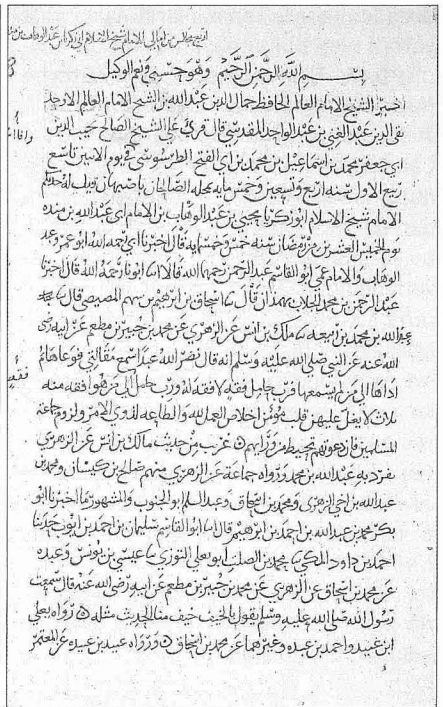 بسم الله الرحمن الرحيم وهو حسبي ونعم الوكيل
اخبرنا الشيخ الامام العالم الحافظ جمال الدين عبد الله بن الشيخ الامام العالم الاوحد
تقي الدين عبد الغني بن عبد الواحد المقدسي قال قرئ علي الشيخ الصالح
ابي جعفر محمد بن اسماعيل بن محمد بن ابي الفتح الطرسوسي في يوم الاثنين تاسع
ربيع الاول سنه اربع وتسعين وخمس مايه بمحله الصالحان باصبهان قيل له اخبركم
الامام شيخ الاسلام ابو زكريا يحيي بن عبد الوهاب بن الامام ابي عبد الله بن منده
يوم الخميس العشرين من رمضان سنه خمس وخمسمايه قال اخبرنا ابي رحمه الله ابو عمرو عبد
الوهاب والامام عمي ابو القاسم عبد الرحمن رحمهما الله قالا ابنا ابونا رحمه الله قال اخبرنا
عبد الرحمن بن محمد الجلاب بهمذان قال اسحاق بن ابرهيم بن سهم المصيصي قال
عبد الله بن محمد بن ربيعه مالك بن انس عن الزهري عن محمد بن جبير بن مطعم عن ابيه رضي
الله عنه عن النبي صلي الله عليه وسلم انه قال نضر الله عبدا سمع مقالتي فوعاها ثم
اداها الي من لم يسمعها فرب حامل فقه لا فقه له ورب حامل الي من هو افقه منه
ثلاث لا يغل عليهن قلب مؤمن اخلاص العمل لله والطاعه لذوي الامر ولزوم جماعة
المسلمين فان دعوتهم تحيط من ورايهم غريب من حديث مالك بن انس عن الزهري
تفرد به عبد الله بن محمد ورواه جماعة عن الزهري منهم صالح بن كيسان ومحمد بن
عبد الله بن اخي الزهري ومحمد بن اسحاق وعبد السلم ابو الجنوب والمشهور ما اخبرنا ابو
بكر محمد بن عبد الله بن احمد بن ابرهيم قال ابنا ابو القاسم سليمان بن احمد بن ايوب حدثنا
احمد بن داود المكي محمد بن الصلت ابو يعلي التوزي عيسي بن يونس وعبده
عن محمد بن اسحاق عن الزهري عن محمد بن جبير بن مطعم عن ابيه رضي الله عنه قال سمعت
رسول الله صلي الله عليه وسلم يقول بالخيف خيف منا الحديث مثله رواه يعلي
ابن عبيد واحمد بن عبده وغيرهما عن محمد بن اسحاق ورواه عبيد بن عبيده عن المعتمر